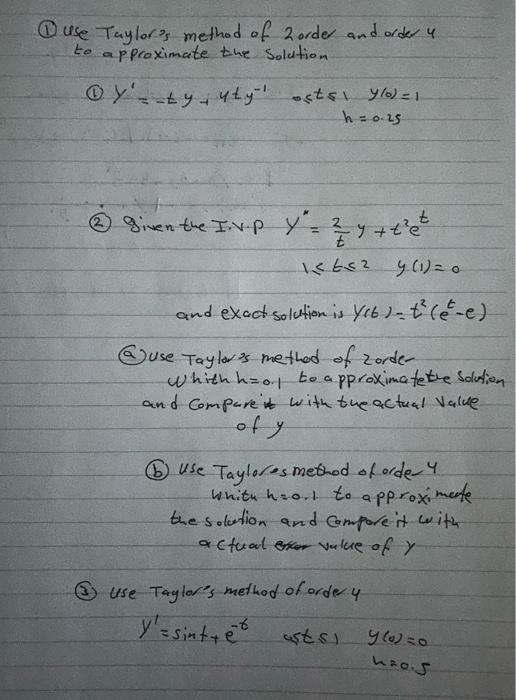 ① use Taylor's method of 2 order and order 4
to approximate the solution
① y' = -ty + 4ty⁻¹ 0≤t≤1 y(0)=1
h = 0.25
② given the I.V.P y' = 2/t y + t²eᵗ
1≤t≤2 y(1)=0
and exact solution is y(t) = t²(eᵗ-e)
ⓐ use Taylor's method of 2 order
whith h=0.1 to approximate the solution
and compare it with the actual value
of y
ⓑ use Taylores method of order 4
whith h=0.1 to approximate
the solution and compore it with
actual value of y
③ use Taylor's method of order 4
y' = sint + e⁻ᵗ 0≤t≤1 y(0)=0
h=0.5